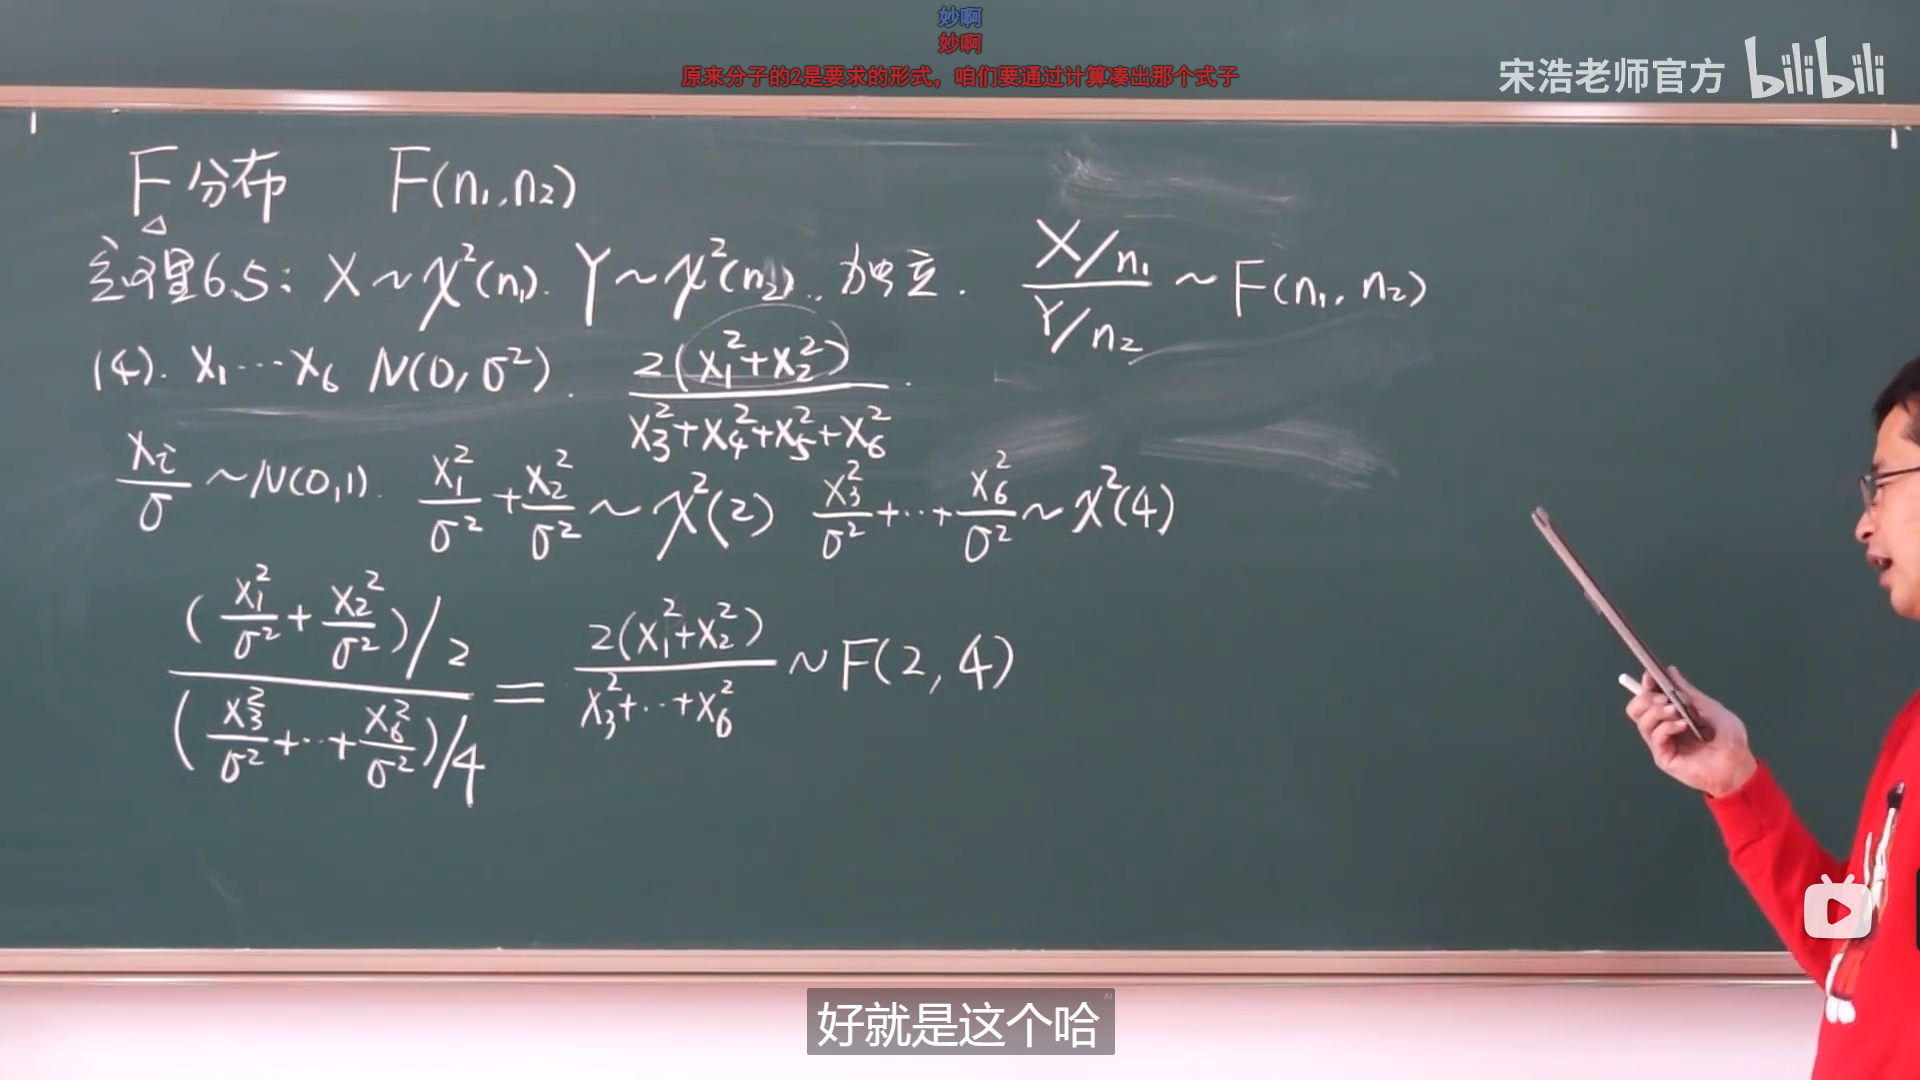 妙啊
妙啊
原来分子的2是要求的形式，咱们要通过计算凑出那个式子
宋浩老师官方 bilibili
F分布 F(n₁,n₂)
定理6.5: X~χ²(n₁). Y~χ²(n₂)., 独立. (X/n₁)/(Y/n₂) ~ F(n₁, n₂)
(4). X₁⋯X₆ N(0, σ²). 2(X₁²+X₂²)/(X₃²+X₄²+X₅²+X₆²).
Xᵢ/σ ~N(0,1). X₁²/σ²+X₂²/σ² ~ χ²(2) X₃²/σ²+⋯+X₆²/σ² ~ χ²(4)
((X₁²/σ²+X₂²/σ²)/2)/((X₃²/σ²+⋯+X₆²/σ²)/4) = 2(X₁²+X₂²)/(X₃²+⋯+X₆²) ~ F(2, 4)
好就是这个哈
AI